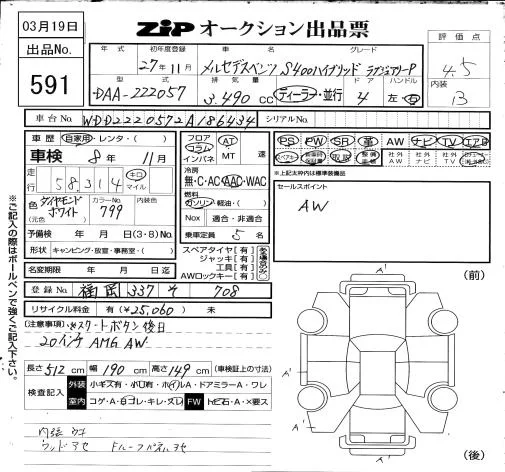 03月19日
ZIP オークション出品票
出品No.
591
評価点
4.5
内装
13
年式 初年度登録 車名 グレード
27年11月 メルセデスベンツ S400ハイブリッド ラグジュアリーP
型式 排気量 ドア ハンドル
DAA-222057 3,490 cc ディーラー・並行 4 左・右
車台No. WDD2220572A186434 シリアルNo.
車歴 自家用・レンタ・( )
車検 8年 11月
走行 58314 キロ マイル
色 (元色) ダイヤモンドホワイト カラーNo. 799 内装色
予備検 年 月 日(3・8)No.
形状 キャンピング・放宣・事務室・( )
名変期限 年 月 日迄
フロア コラム インパネ AT MT 速
冷房
無・C・AC・AAC・WAC
燃料
ガソリン・軽油・( )
Nox 適合・非適合
乗車定員 5名
スペアタイヤ[有]
ジャッキ[有]
工具[有]
AWロックキー[有]
PS PW SR 革 AW ナビ TV エアB
取説
社外AW 社外ナビ 社外TV
※上記太枠内は標準装備品
セールスポイント
AW
登録No. 福岡 337 そ 708
リサイクル料金 有(¥25,060) 未
(注意事項)※スタートボタン後日
20インチ AMG AW
長さ 512 cm 幅 190 cm 高さ 149 cm (車検証上の寸法)
検査記入 外装 小キズ有・小凹有・ホイルA・ドアミラーA・ワレ
室内 コゲ・A・ヨゴレ・キレ・スレ FW トビ石・A・×要ス
内張
ウッドアセ ドルーフパネルアセ
※ご記入の際はボールペンで強くご記入下さい。
(前)
A'
A'
A'
A'
(後)